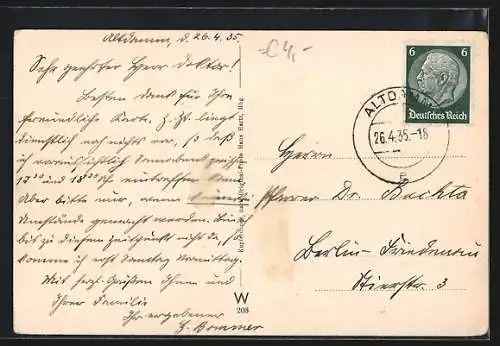 Altdamm, d. 26.4.35.
Sehr geehrter Herr Doktor!
Besten Dank für Ihre
freundliche Karte. Z. Zt. liegt
dienstlich noch nichts vor, so daß
ich voraussichtlich Sonnabend zwischen
17³⁰ und 18³⁰ Uhr eintreffen kann.
Aber bitte nur, wenn keinerlei
Umstände gemacht werden. Bin
bis zu diesem Zeitpunkt nicht da, so
komme ich erst Sonntag Vormittag.
Mit herzl. Grüßen Ihnen und
Ihrer Familie
Ihr ergebener
H. Brommer
€ 4,-
6 6
Deutsches Reich
ALTDAMM
26.4.35.-18
Herrn
Pfarrer Dr. Bachta
Berlin-Friedenau
Stierstr. 3
W
208